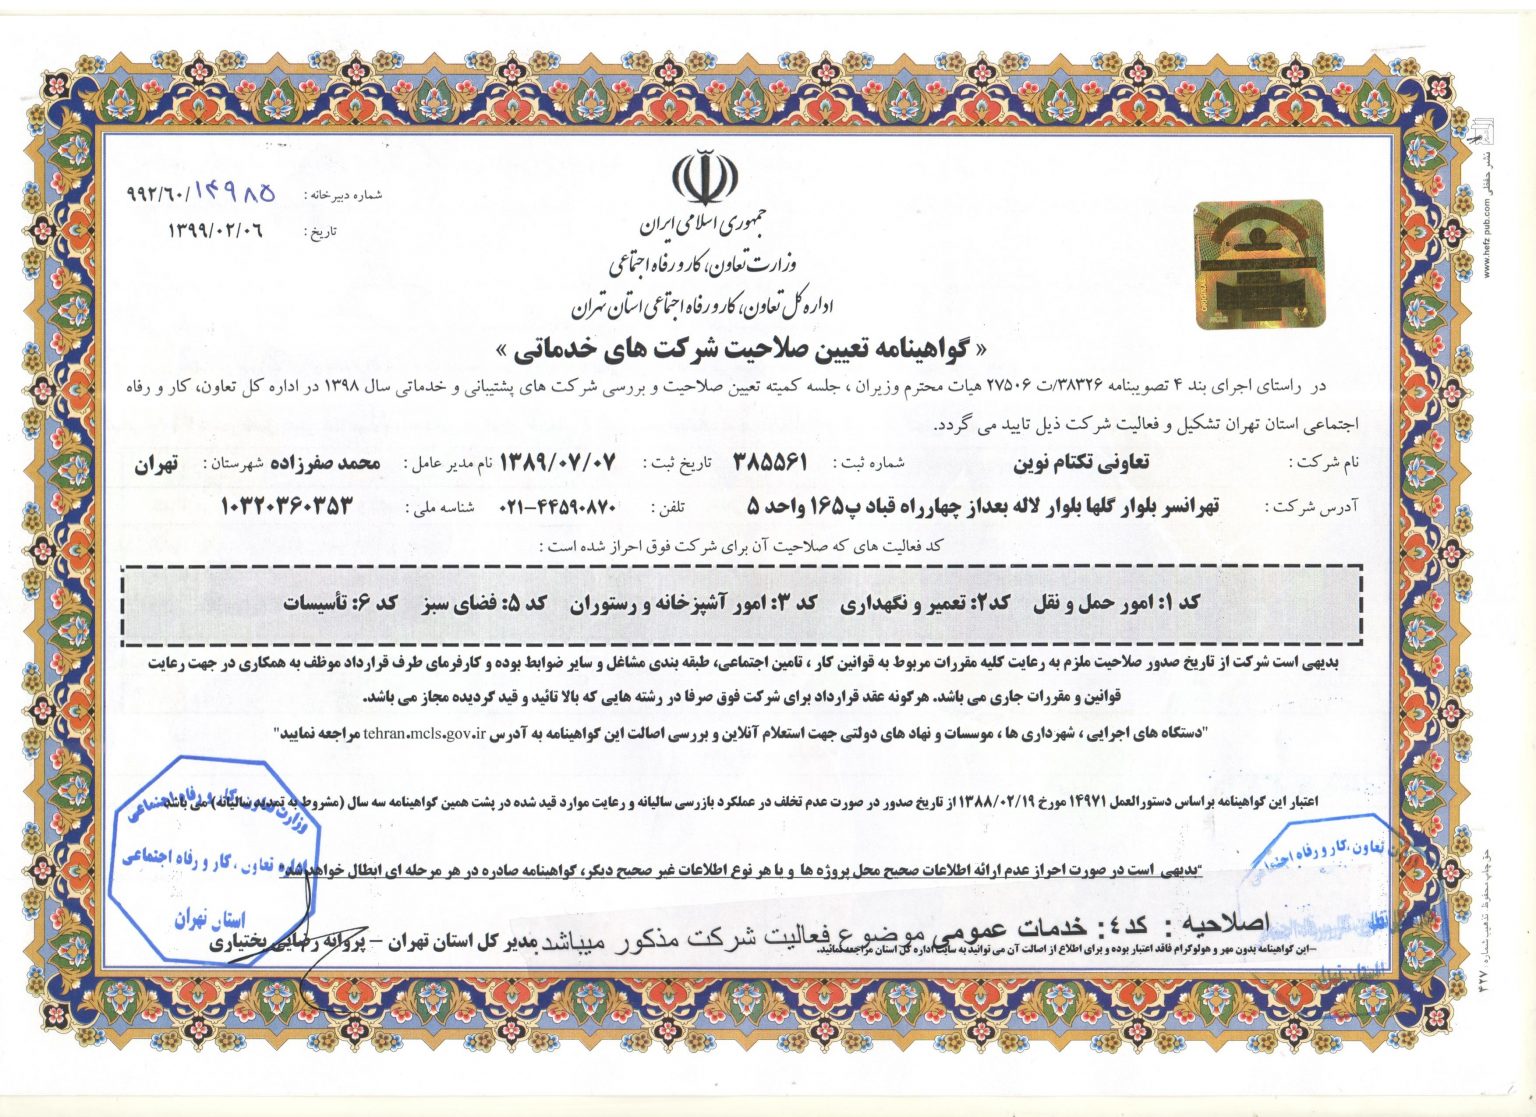 جمهوری اسلامی ایران
وزارت تعاون، کار و رفاه اجتماعی
اداره کل تعاون، کار و رفاه اجتماعی استان تهران
شماره دبیرخانه: ۹۹۲/۶۰/۱۴۹۸۵
تاریخ: ۱۳۹۹/۰۲/۰۶
« گواهینامه تعیین صلاحیت شرکت های خدماتی »
در راستای اجرای بند ۴ تصویبنامه ۳۸۳۲۶/ت ۲۷۵۰۶ هیات محترم وزیران ، جلسه کمیته تعیین صلاحیت و بررسی شرکت های پشتیبانی و خدماتی سال ۱۳۹۸ در اداره کل تعاون، کار و رفاه
اجتماعی استان تهران تشکیل و فعالیت شرکت ذیل تایید می گردد.
نام شرکت: تعاونی تکتام نوین شماره ثبت: ۳۸۵۵۶۱ تاریخ ثبت: ۱۳۸۹/۰۷/۰۷ نام مدیر عامل: محمد صفرزاده شهرستان: تهران
آدرس شرکت: تهرانسر بلوار گلها بلوار لاله بعداز چهارراه قباد پ۱۶۵ واحد ۵ تلفن: ۰۲۱-۴۴۵۹۰۸۷۰ شناسه ملی: ۱۰۳۲۰۳۶۰۳۵۳
کد فعالیت های که صلاحیت آن برای شرکت فوق احراز شده است :
کد ۱: امور حمل و نقل کد۲: تعمیر و نگهداری کد ۳: امور آشپزخانه و رستوران کد ۵: فضای سبز کد ۶: تأسیسات
بدیهی است شرکت از تاریخ صدور صلاحیت ملزم به رعایت کلیه مقررات مربوط به قوانین کار ، تامین اجتماعی، طبقه بندی مشاغل و سایر ضوابط بوده و کارفرمای طرف قرارداد موظف به همکاری در جهت رعایت
قوانین و مقررات جاری می باشد. هرگونه عقد قرارداد برای شرکت فوق صرفا در رشته هایی که بالا تائید و قید گردیده مجاز می باشد.
"دستگاه های اجرایی ، شهرداری ها ، موسسات و نهاد های دولتی جهت استعلام آنلاین و بررسی اصالت این گواهینامه به آدرس tehran.mcls.gov.ir مراجعه نمایید"
اعتبار این گواهینامه براساس دستورالعمل ۱۴۹۷۱ مورخ ۱۳۸۸/۰۲/۱۹ از تاریخ صدور در صورت عدم تخلف در عملکرد بازرسی سالیانه و رعایت موارد قید شده در پشت همین گواهینامه سه سال (مشروط به تمدید سالیانه) می باشد
"بدیهی است در صورت احراز عدم ارائه اطلاعات صحیح محل پروژه ها و یا هر نوع اطلاعات غیر صحیح دیگر، گواهینامه صادره در هر مرحله ای ابطال خواهد شد"
اصلاحیه : کد۴: خدمات عمومی موضوع فعالیت شرکت مذکور میباشد
مدیر کل استان تهران - پروانه رضایی بختیاری
-این گواهینامه بدون مهر و هولوگرام فاقد اعتبار بوده و برای اطلاع از اصالت آن می توانید به سایت اداره کل استان مراجعه نمائید.
وزارت تعاون، کار و رفاه اجتماعی
اداره تعاون ، کار و رفاه اجتماعی
استان تهران
تعاون ،کار و رفاه اجتماعی
نشر حفظی www.hefz pub.com
حق چاپ محفوظ، تذهیب شماره: ۴۲۷